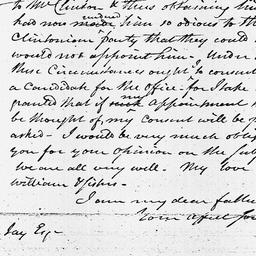 to Mr Clinton & thus obtaining his
had now made rendered him so odious to the
Clintonian party that they could
would not appoint him - Under
these Circumstances ought I to consent
a Candidate for the Office - for I take
granted that if such my appointment
be thought of, my Consent will be
asked - I would be very much oblig
you for your Opinion on the Sub
We are all very well. My love
William & Sisters -
I am my dear father
Your affect
Jay Esqr